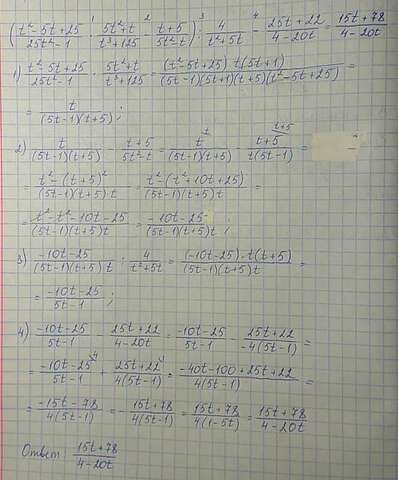 (t²-5t+25/25t²-1 · 5t²+t/t³+125 - t+5/5t²-t) : 4/t²+5t - 25t+22/4-20t = 15t+78/4-20t
1) t²-5t+25/25t²-1 · 5t²+t/t³+125 = (t²-5t+25) t(5t+1)/(5t-1)(5t+1)(t+5)(t²-5t+25) =
= t/(5t-1)(t+5) ;
2) t/(5t-1)(t+5) - t+5/5t²-t = t/(5t-1)(t+5) - t+5/t(5t-1) =
= t²-(t+5)²/(5t-1)(t+5)·t = t²-(t²+10t+25)/(5t-1)(t+5)·t =
= t²-t²-10t-25/(5t-1)(t+5)·t = -10t-25/(5t-1)(t+5)t ;
3) -10t-25/(5t-1)(t+5)t : 4/t²+5t = (-10t-25)·t(t+5)/(5t-1)(t+5)t =
= -10t-25/5t-1 ;
4) -10t-25/5t-1 - 25t+22/4-20t = -10t-25/5t-1 - 25t+22/-4(5t-1) =
= -10t-25/5t-1 + 25t+22/4(5t-1) = -40t-100+25t+22/4(5t-1) =
= -15t-78/4(5t-1) = - 15t+78/4(5t-1) = 15t+78/4(1-5t) = 15t+78/4-20t
Ответ: 15t+78/4-20t